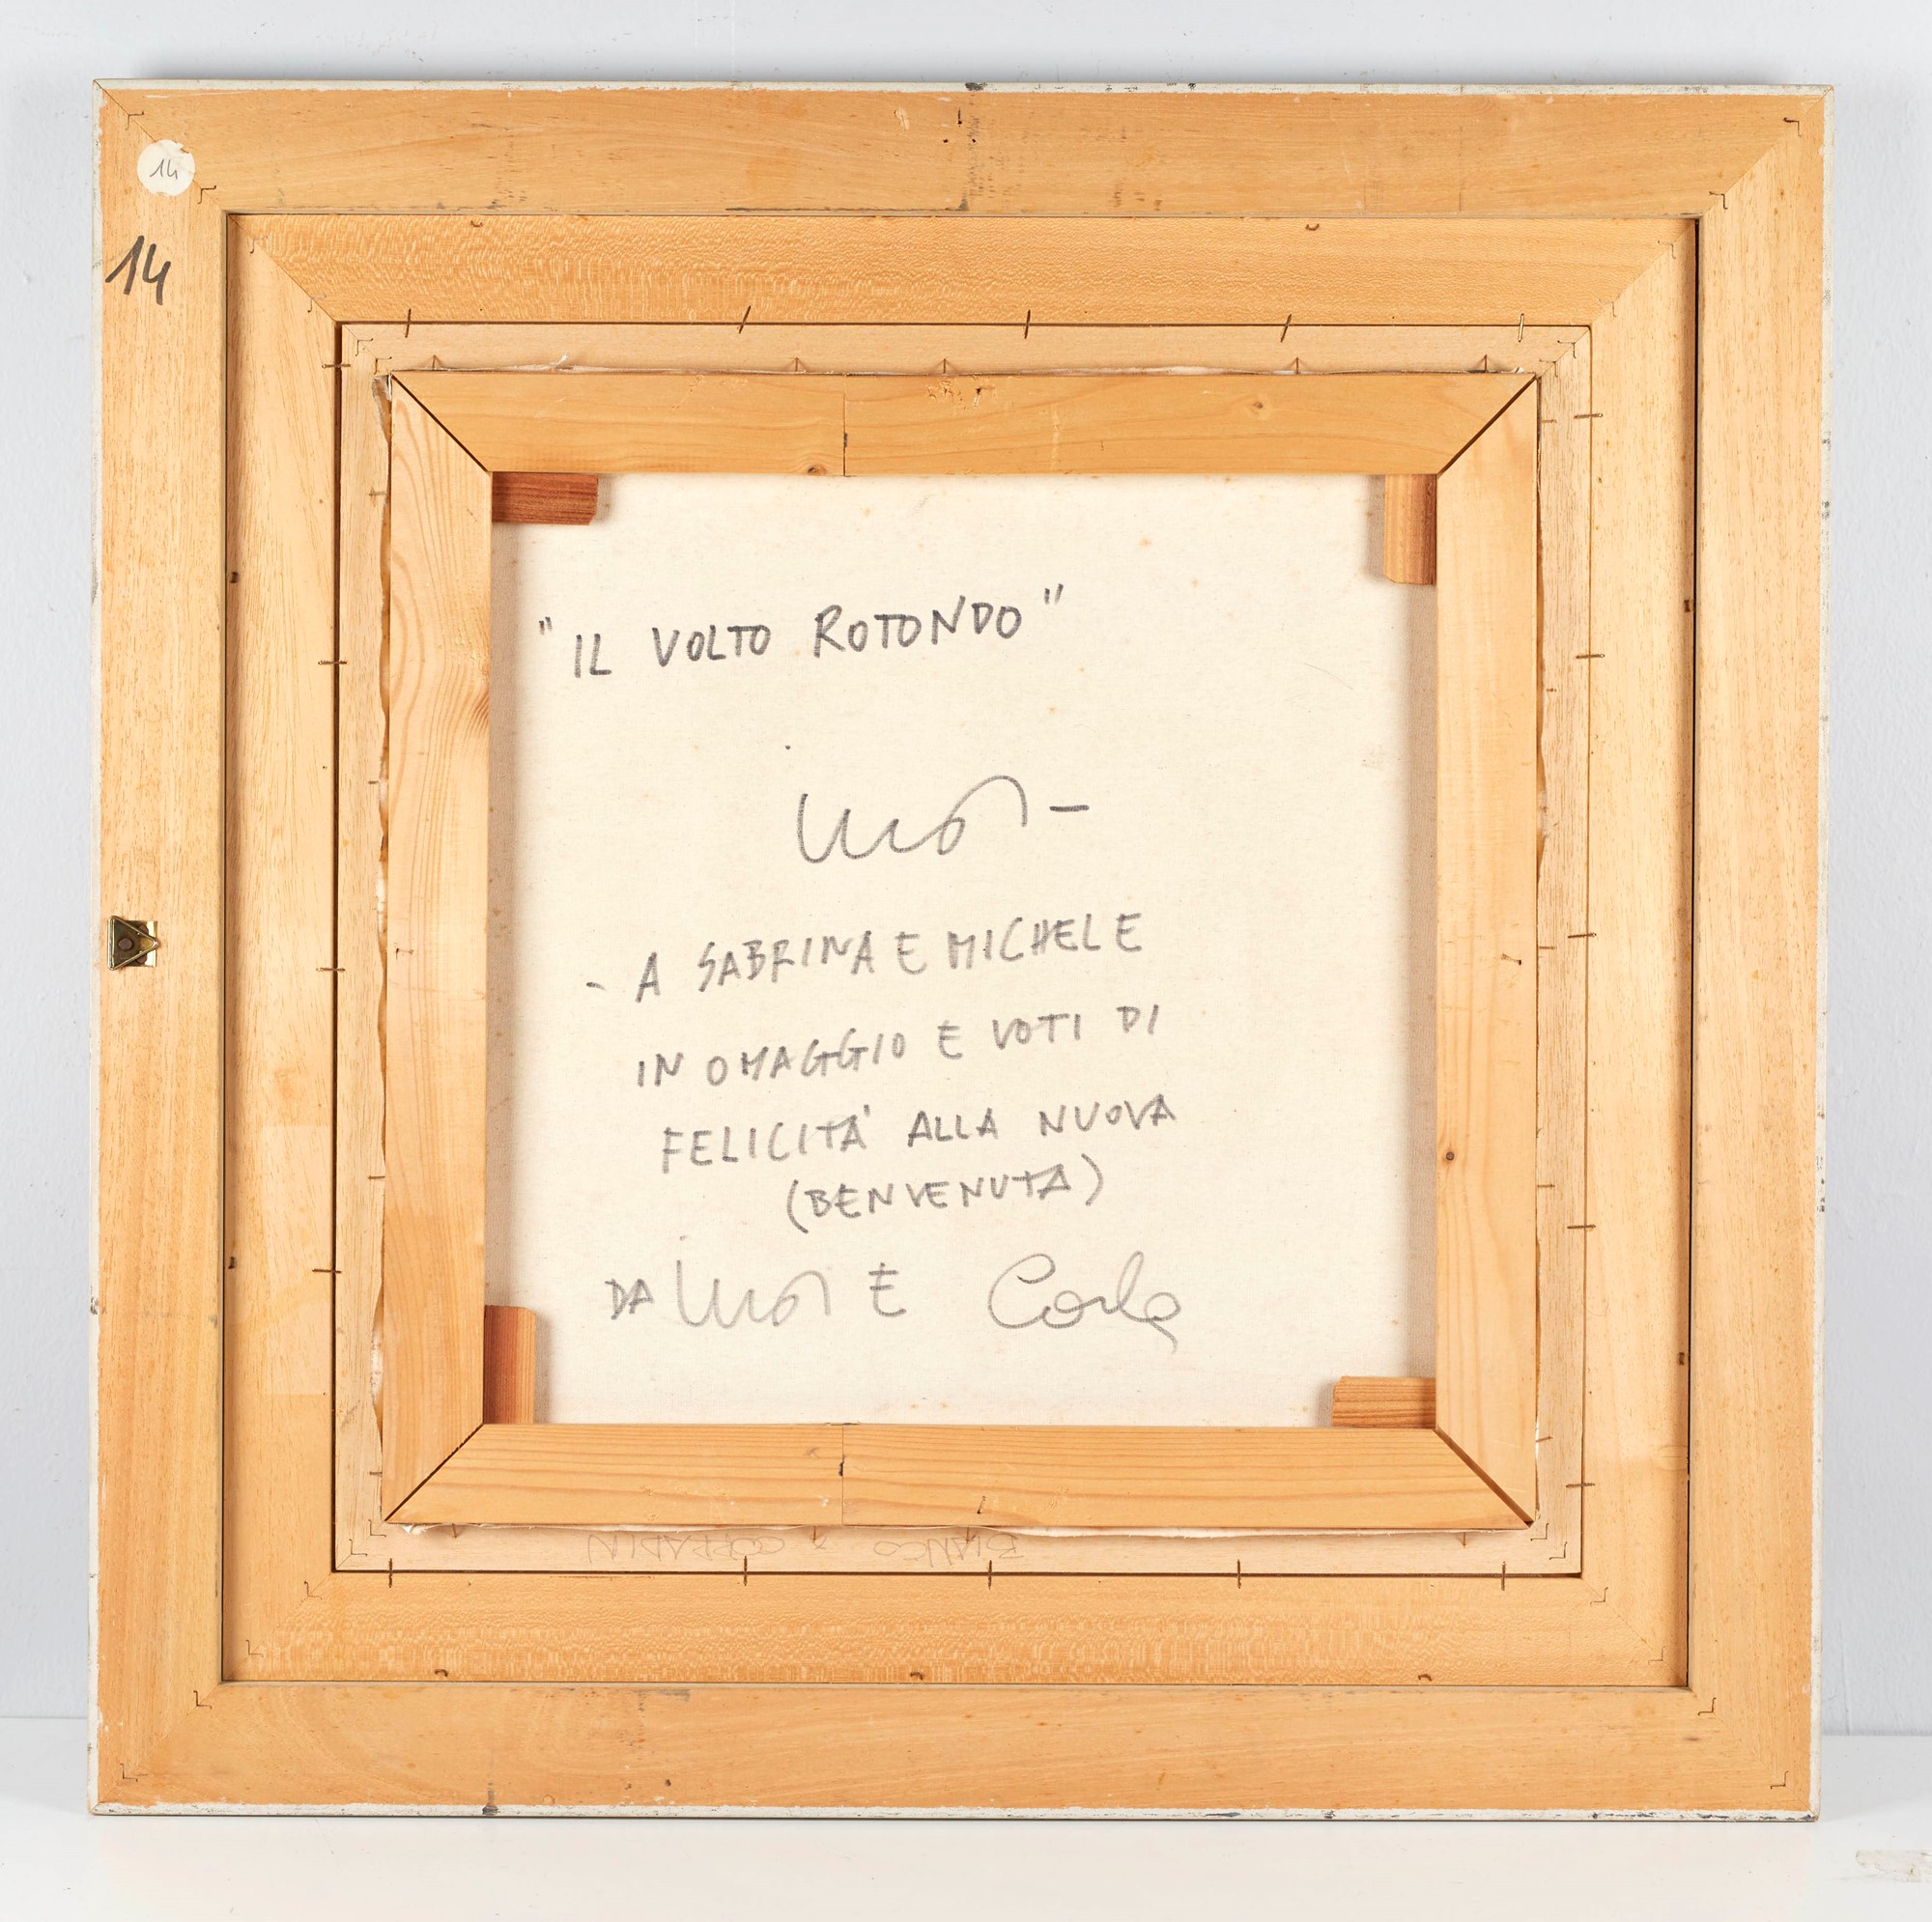 14
14
"IL VOLTO ROTONDO"
- A SABRINA E MICHELE
IN OMAGGIO E VOTI DI
FELICITA' ALLA NUOVA
(BENVENUTA)
DA E Carla
BIANCO CORRADIN